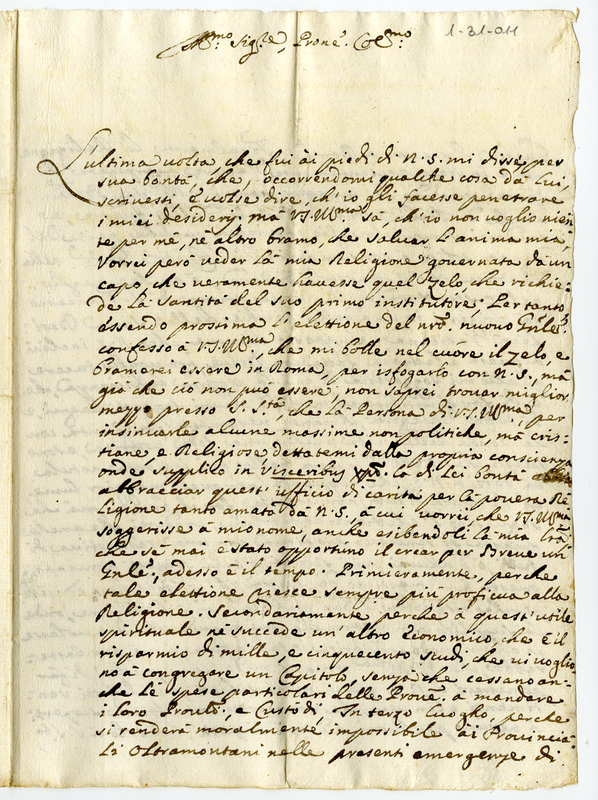 1-31-011
Ill.mo Sig.re, Prone. Col.mo
L'ultima volta che fui ài piedi di N.S. mi disse per
sua bontà, che, occorrendomi qualche cosa dà Lui,
scrivessi, è volse dire, ch'io gli facesse penetrare
i miei desiderij. mà V.S.Ill.ma sà, ch'io non voglio nien
te per mè, nè altro bramo, che salvar l'anima mia,
Vorrei però veder là mia Religione governata da un
capo, che veramente havesse quel zelo, che richie-
de là santità del suo primo institutore; Per tanto
èssendo prossima l'elettione del nrõ. nuovo Gnle.
confesso à V.S.Ill.ma, che mi bolle nel cuòre il zelo, e
bramerei essere in Roma, per isfogarlo con N.S., mà
già che ciò non può èssere, non saprei trovar miglior
mezzo presso S. S.tà, che là Persona di V.S.Ill.ma, per
insinuarle alcune massime non politiche, mà cris-
tiane, e Religiose dettatemi dalla propria conscienza
onde supplico in visceribus xpĩ. la di Lei bontà
abbracciar quest'ufficio di carità per la povera Re
ligione tanto amata dà N.S. à cui vorrei, che V.S.Ill.ma
soggerisse à mio nome, anche esibendoli là mia
che sà mai è stato opportuno il crear per Breve un
Gnle., adesso è il tempo. Primieramente, perche
tale elettione riesce sempre più proficua alla
Religione. Secondariamente perche à quest'utile
spirituale nè succede un'altro Economico, che è il
risparmio di mille, e cinquecento scudi, che vi voglio
no à congregare un Capitolo, senza che cessano an-
che lè spese particolari delle Provē. à mandare
i loro Provli., e Custodi, In terzo luogho, perche
si renderà moralmente impossibile ài Provincia-
li Oltramontani nelle presenti emergenze di